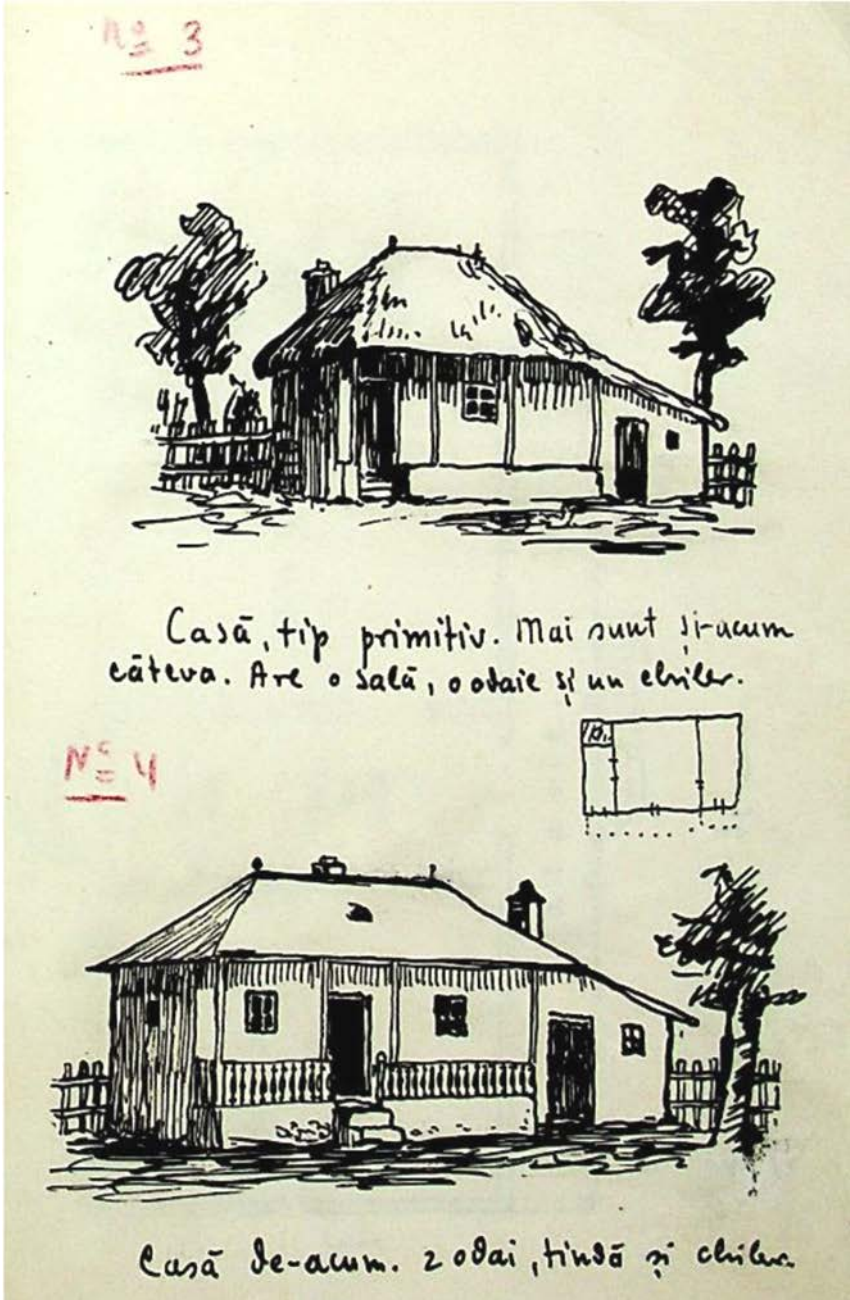 No 3
Casă, tip primitiv. Mai sunt și-acum
câteva. Are o sală, o odaie și un chiler.
No 4
Casă de-acum. 2 odai, tindă și chiler.